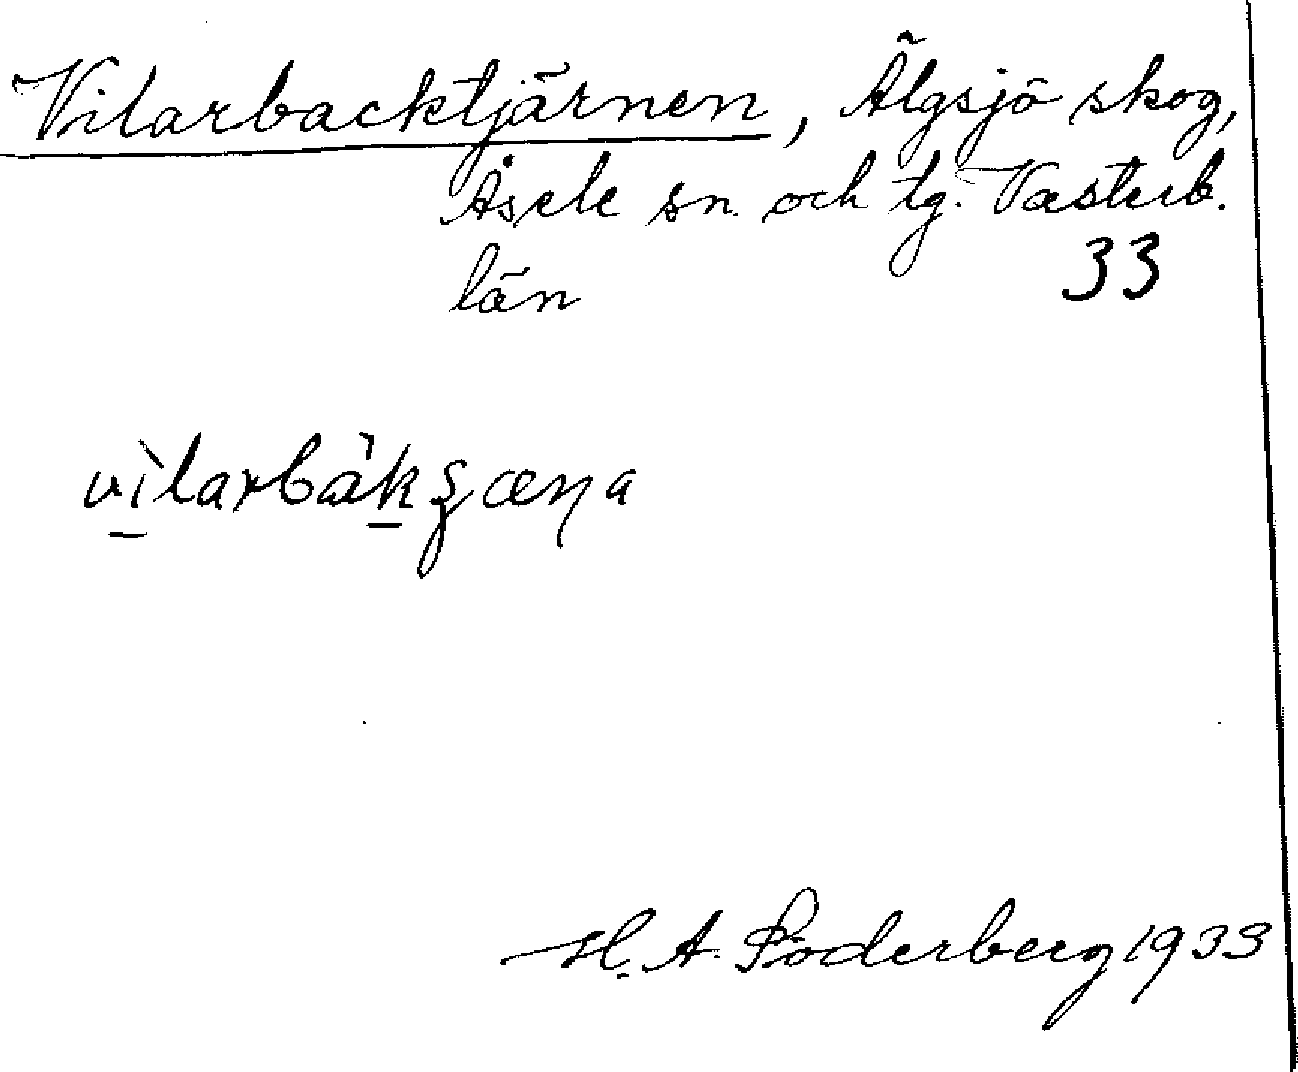 Vilarbacktjärnen, Älgsjö skog,
Åsele sn. och tg. Västerb.
län 33
vìlarbàkʂæɳa
H. A. Söderberg 1933